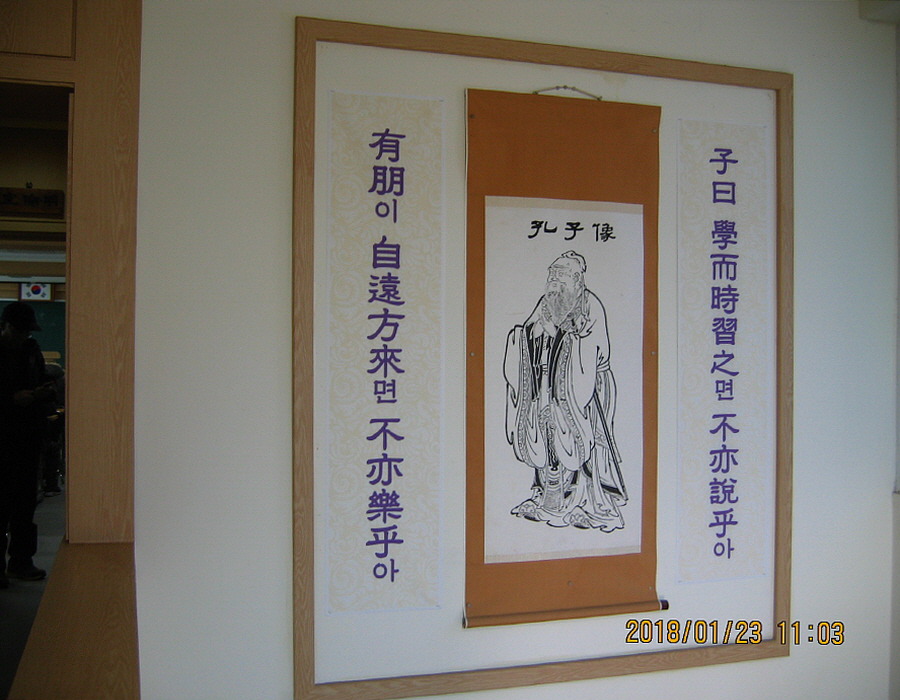 子曰 學而時習之면 不亦說乎아
孔子像
有朋이 自遠方來면 不亦樂乎아
2018/01/23 11:03